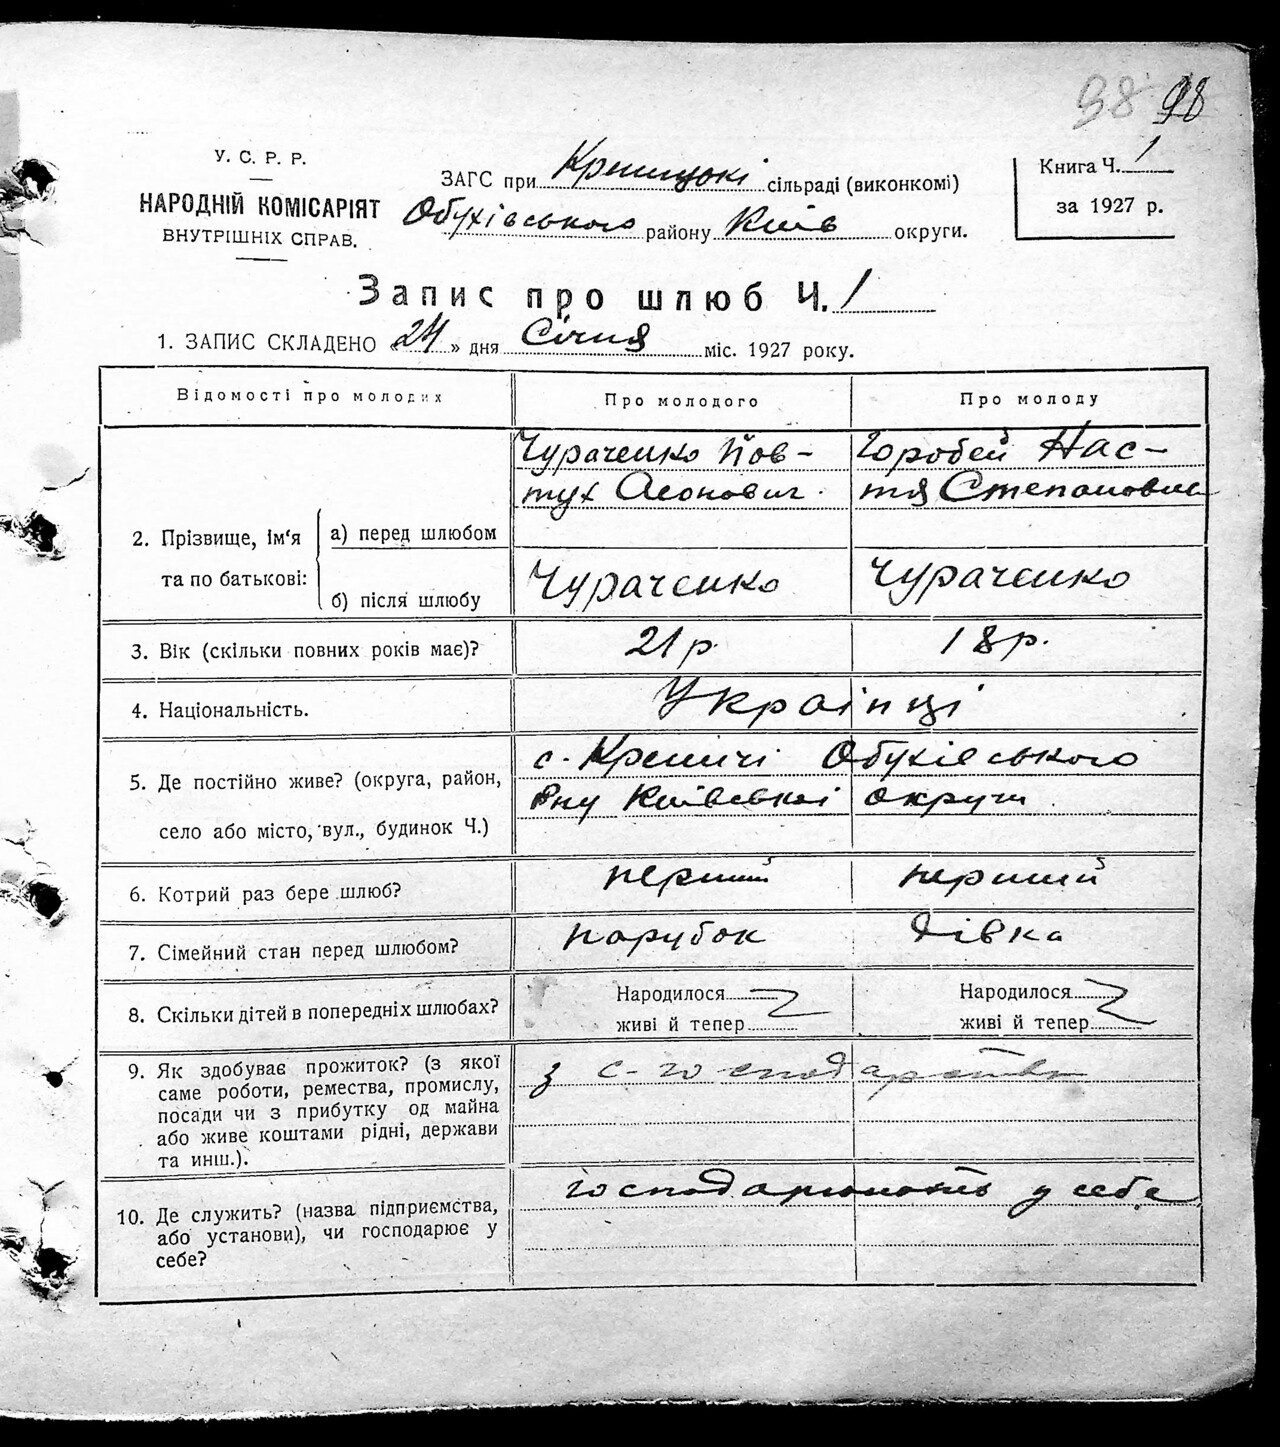 98 98
У. С. Р. Р.
НАРОДНІЙ КОМІСАРІЯТ
ВНУТРІШНІХ СПРАВ.
ЗАГС при сільраді (виконкомі)
Обухівського району Київ округи.
Книга Ч. 1
за 1927 р.
Запис про шлюб Ч. 1
1. ЗАПИС СКЛАДЕНО „24” дня Січня міс. 1927 року.
Відомості про молодих Про молодого Про молоду
2. Прізвище, ім‘я та по батькові:
а) перед шлюбом
Чураченко Йов-
тух
Горобей Нас-
тя Степановна
б) після шлюбу
Чураченко Чураченко
3. Вік (скільки повних років має)? 21 р. 18 р.
4. Національність. Українці
5. Де постійно живе? (округа, район,
село або місто, вул., будинок Ч.)
с. Обухівського
Рну Київської округи
6. Котрий раз бере шлюб? перший перший
7. Сімейний стан перед шлюбом? парубок дівка
8. Скільки дітей в попередніх шлюбах?
Народилося
живі й тепер
Народилося
живі й тепер
9. Як здобуває прожиток? (з якої
саме роботи, ремества, промислу,
посади чи з прибутку од майна
або живе коштами рідні, держави
та инш.).
з с-господарства
10. Де служить? (назва підприємства,
або установи), чи господарює у
себе?
господарюють у себе